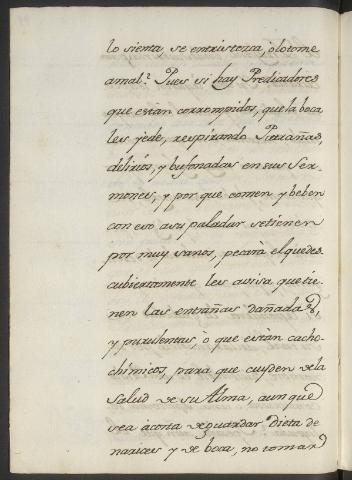 lo sienta, se entristezca, ò lo tome
a mal? Pues si hay Predicadores
que estàn corrompidos, que la boca
les yede, respirando Patrañas,
delirios, y bufonadas en sus Ser-
mones, y por que comen y beben
con eso a su paladar se tienen
por muy sanos, pecarà el que des-
cubiertamente les avisa que tie-
nen las entrañas dañadas,
y purulentas, ò que estàn caco-
chimicos, para que cuyden de la
Salud de su Alma, aunque
sea à costa de guardar dieta de
narices y de boca, no tomar